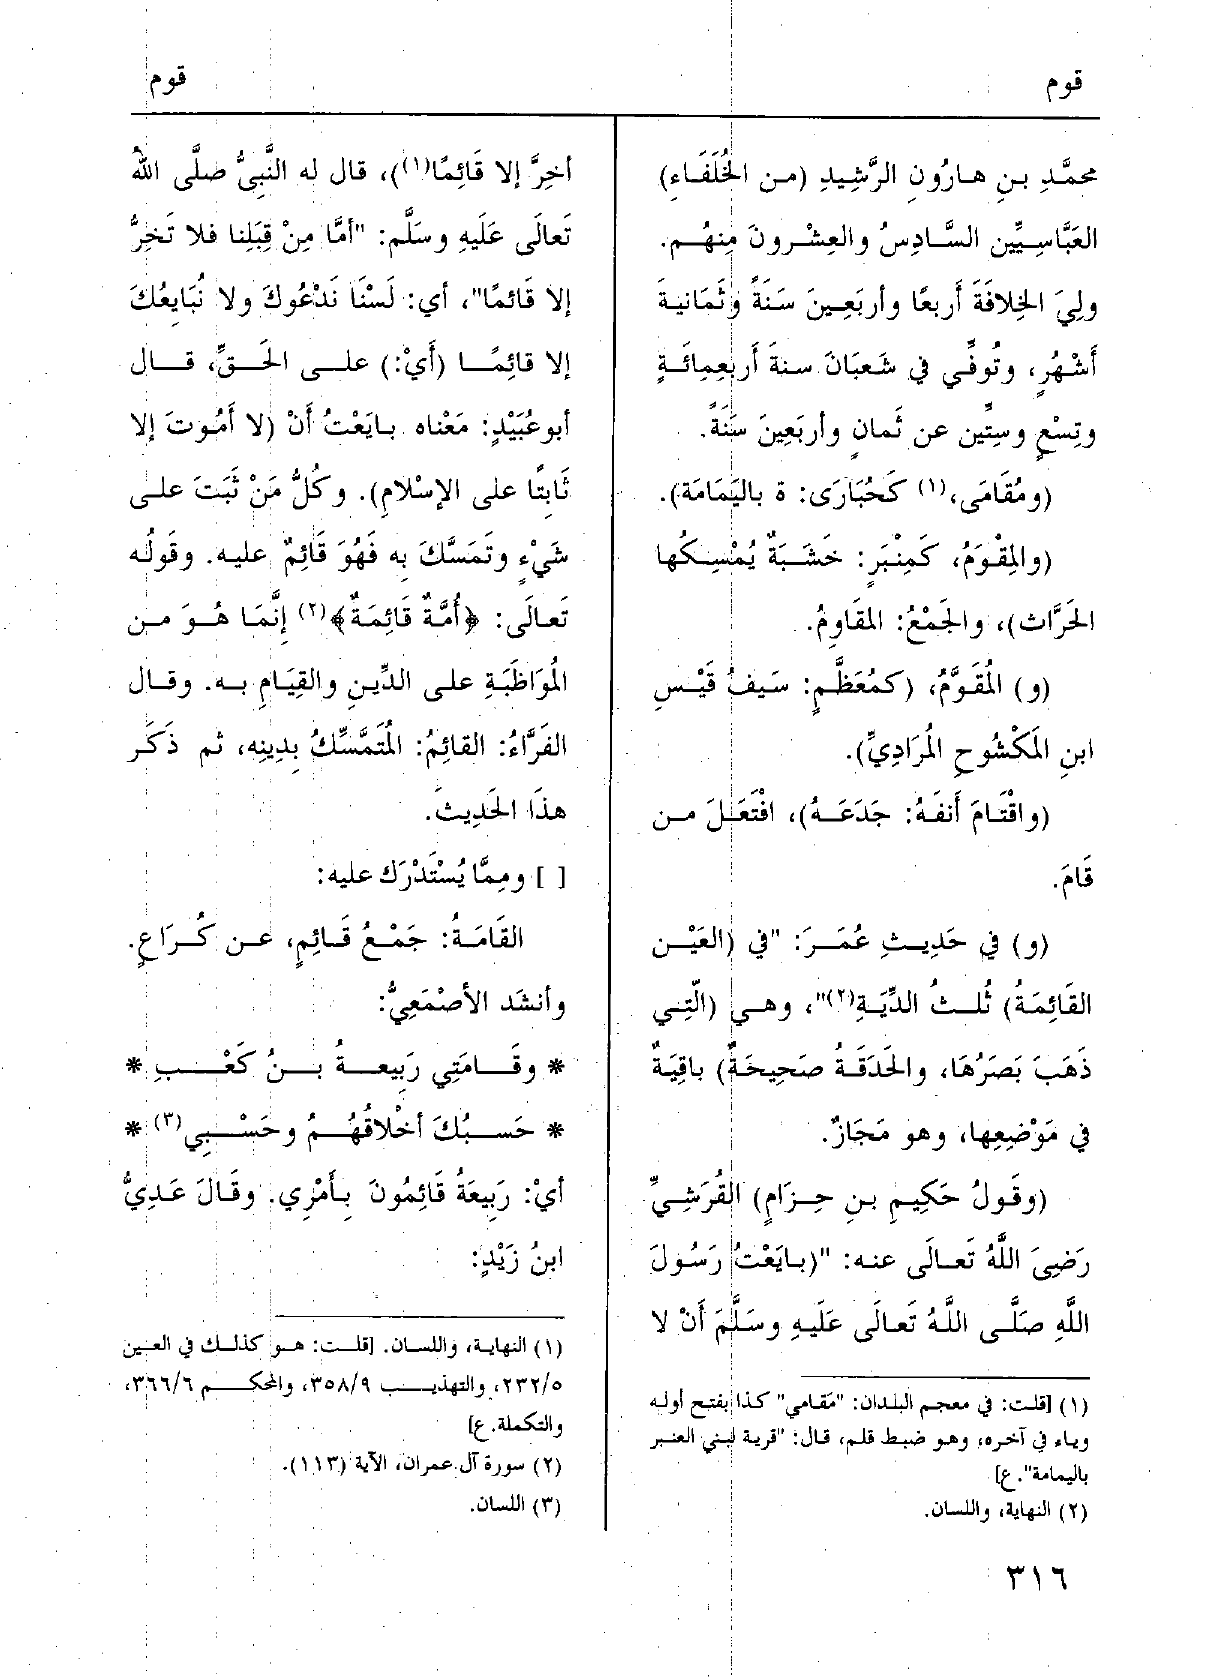 قوم
قوم
محمَّدِ بنِ هارُونِ الرَّشِيدِ (من الخُلَفَاءِ)
العَبَّاسِيِّين السَّادِسُ والعِشْرونَ مِنهُم.
ولِيَ الخِلافَةَ أَربعًا وأربَعِينَ سَنَةً وثَمَانيةَ
أَشْهُرٍ، وتُوفِّي في شَعبَانَ سنةَ أَربعِمِائَةٍ
وتِسْعٍ وسِتِّين عن ثَمانٍ وأربَعِينَ سَنَةً.
(ومُقَامَى،(١) كَحُبَارَى: ة باليَمَامَة).
(والمِقْوَمُ، كَمِنْبَرٍ: خَشَبَةٌ يُمْسِكُها
الحَرَّاث)، والجَمْعُ: المقَاوِمُ.
(و) المُقَوَّمُ، (كمُعَظَّمٍ: سَيفُ قَيْسِ
ابنِ المَكْشُوحِ المُرَادِيِّ).
(واقْتَامَ أَنفَهُ: جَدَعَهُ)، افْتَعَلَ من
قَامَ.
(و) في حَدِيثِ عُمَرَ: "في (العَيْن
القَائِمَةُ) ثُلثُ الدِّيَةِ(٢)"، وهي (الَّتِي
ذَهَبَ بَصَرُهَا، والحَدَقَةُ صَحِيحَةٌ) باقِيَةٌ
في مَوْضِعِها، وهو مَجَازٌ.
(وقَولُ حَكِيمِ بنِ حِزامٍ) القُرَشِيِّ
رَضِيَ اللَّهُ تَعالَى عنه: "(بايَعْتُ رَسُولَ
اللَّهِ صَلَّى اللَّهُ تَعَالَى عَلَيهِ وسَلَّمَ أَنْ لا
(١) [قلت: في معجم البلدان: "مَقامي" كذا بفتح أوله
وياء في آخره، وهو ضبط قلم، قال: "قرية لبني العنبر
باليمامة". ع]
(٢) النهاية، واللسان.
أَخِرَّ إلا قَائِمًا(١))، قال له النَّبِيُّ صلَّى اللهُ
تَعَالَى عَلَيهِ وسَلَّم: "أمَّا مِنْ قِبَلِنا فلا تَخِرُّ
إلا قَائمًا"، أي: لَسْنَا نَدْعُوكَ ولا نُبَايعُكَ
إلا قائِمًا (أَيْ:) على الحَقِّ، قال
أبو عُبَيْدٍ: مَعْناه بايَعْتُ أَنْ (لا أَمُوتَ إلا
ثَابِتًا على الإسْلامِ). وكُلُّ مَنْ ثَبَتَ على
شَيْءٍ وتَمَسَّكَ به فَهُوَ قَائِمٌ عليه. وقَولُه
تَعالَى: ﴿أُمَّةٌ قَائِمَةٌ﴾(٢) إنَّمَا هُوَ من
المُوَاظَبَةِ على الدِّينِ والقِيَامِ به. وقال
الفَرَّاءُ: القائِمُ: المُتَمَسِّكُ بِدِينِه، ثم ذَكَر
هذَا الحَدِيثَ.
[ ] ومِمَّا يُسْتَدْرَك عليه:
القَامَةُ: جَمْعُ قَائِمٍ، عن كُرَاعٍ.
وأنشَد الأَصْمَعِيُّ:
* وقَامَتِي رَبِيعةُ بنُ كَعْبِ *
* حَسبُكَ أَخْلاقُهُمُ وحَسْبِي(٣) *
أيْ: رَبِيعَةُ قَائِمُونَ بِأَمْرِي. وقَالَ عَدِيُّ
ابنُ زَيْدٍ:
(١) النهاية، واللسان. [قلت: هو كذلك في العين
٢٣٢/٥، والتهذيب ٣٥٨/٩، والمحكم ٣٦٦/٦،
والتكملة. ع]
(٢) سورة آل عمران، الآية (١١٣).
(٣) اللسان.
٣١٦